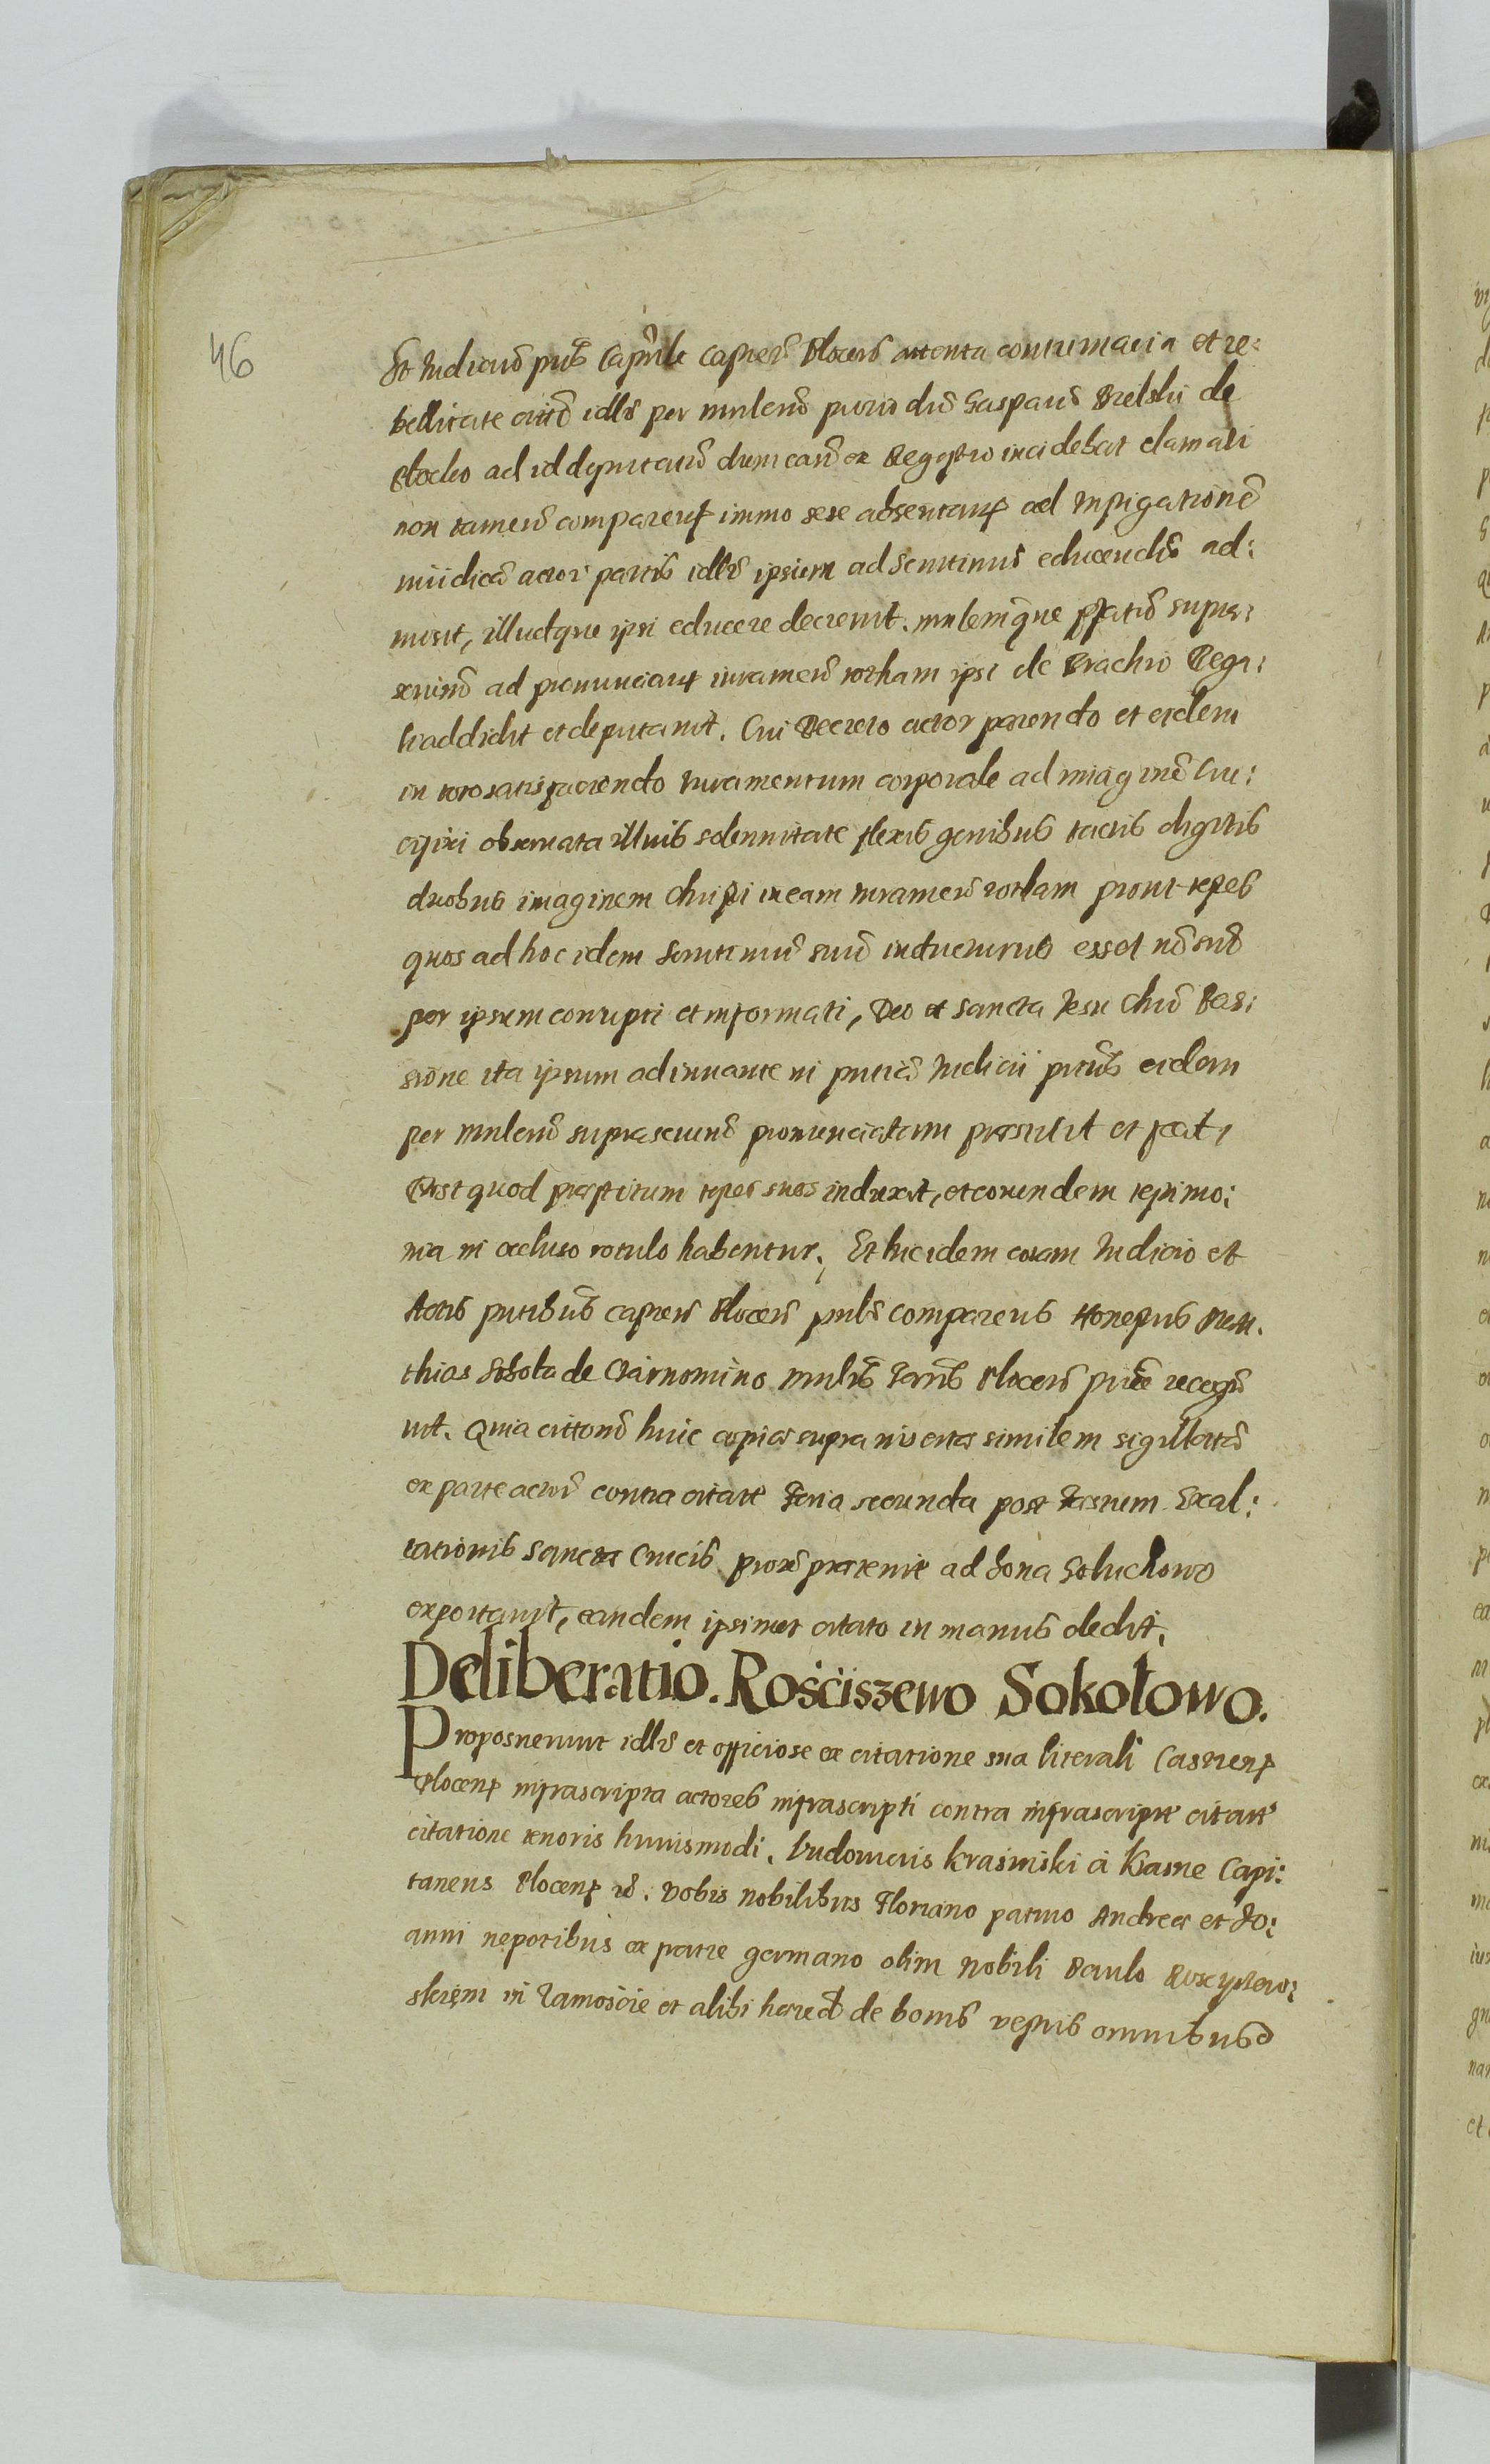 46
Et Iudiciũ pñs Capñle Castreñ Ploceñ attenta contumacia et re:
bellitate citĩ idlr per mnlem̃ pưio diẽ Gasparũ Bielski de
Plocko ad id deputatũ dum causã ex Regestro incidebat clamati
non tameñ comparenṭ immo sese absentanṭ ad instigationẽ
iuridicã actori partis idlr ipsum ad Scrutiniũ educendũ ad:
misit, illudque ipsi educere decreuit. mnlemque pfatũ supra:
scriptũ ad pronunciant iurameñ rotham ipsi de Brachio Rega:
li addidit et deputauit. Cui Decreto actor parendo et eidem
in toto satisfaciendo Iuramentum corporale ad imaginẽ Cru:
cifixi obseruata illius solennitate flexis genibus tactis digitis
duobus imaginem Christi in eam iurameñ rotham prout testes
quos ad hoc idem Scrutiniũ suũ inducturus esset nõ sũt
per ipsum corrupti et informati, Deo et sancta Iesu Chrĩ Pas:
sione ita ipsum adiuuante in pñtiã Iudicii pñtis eidem
per mnlem̃ suprascriptũ pronunciatam praestitit et fecit,
Post quod praestitum testes suos induxit, et eorundem testimo:
nia in occluso rotulo habentur. Et hic idem coram Iudicio et
Actis pñtibus castreñ Ploceñ pnlr comparens Honestus Mat:
thias Sobota de mnlris Terrĩs Ploceñ recogñ
uit. Quia cittonẽ huic copiae supra insertae similem sigillatã
ex parte actorĩ contra citatĩ Feria secunda post Festum Exal:
tationis Sanctae Crucis proxẽ praeterite ad bona Goluchowo
exportauit, eandem ipsimet citato in manus dedit.
Deliberatio. Rościszewo Sokołowo.
Proposuerunt idlr et officiose ex citatione sua literali Castrenṣ
Plocenṣ infrascripta actores infrascripti contra infrascriptĩ citatĩ
citatione tenoris huiusmodi. Ludouicus Krasinski à Krasne Capi:
taneus Plocenṣ ec̃. Vobis Nobilibus Floriano patruo Andreae et Jo:
anni nepotibus ex patre germano olim Nobili Paulo Roscyszew:
skiem in Zamoscie et alibi haeredĩ de bonis vestris omnibus